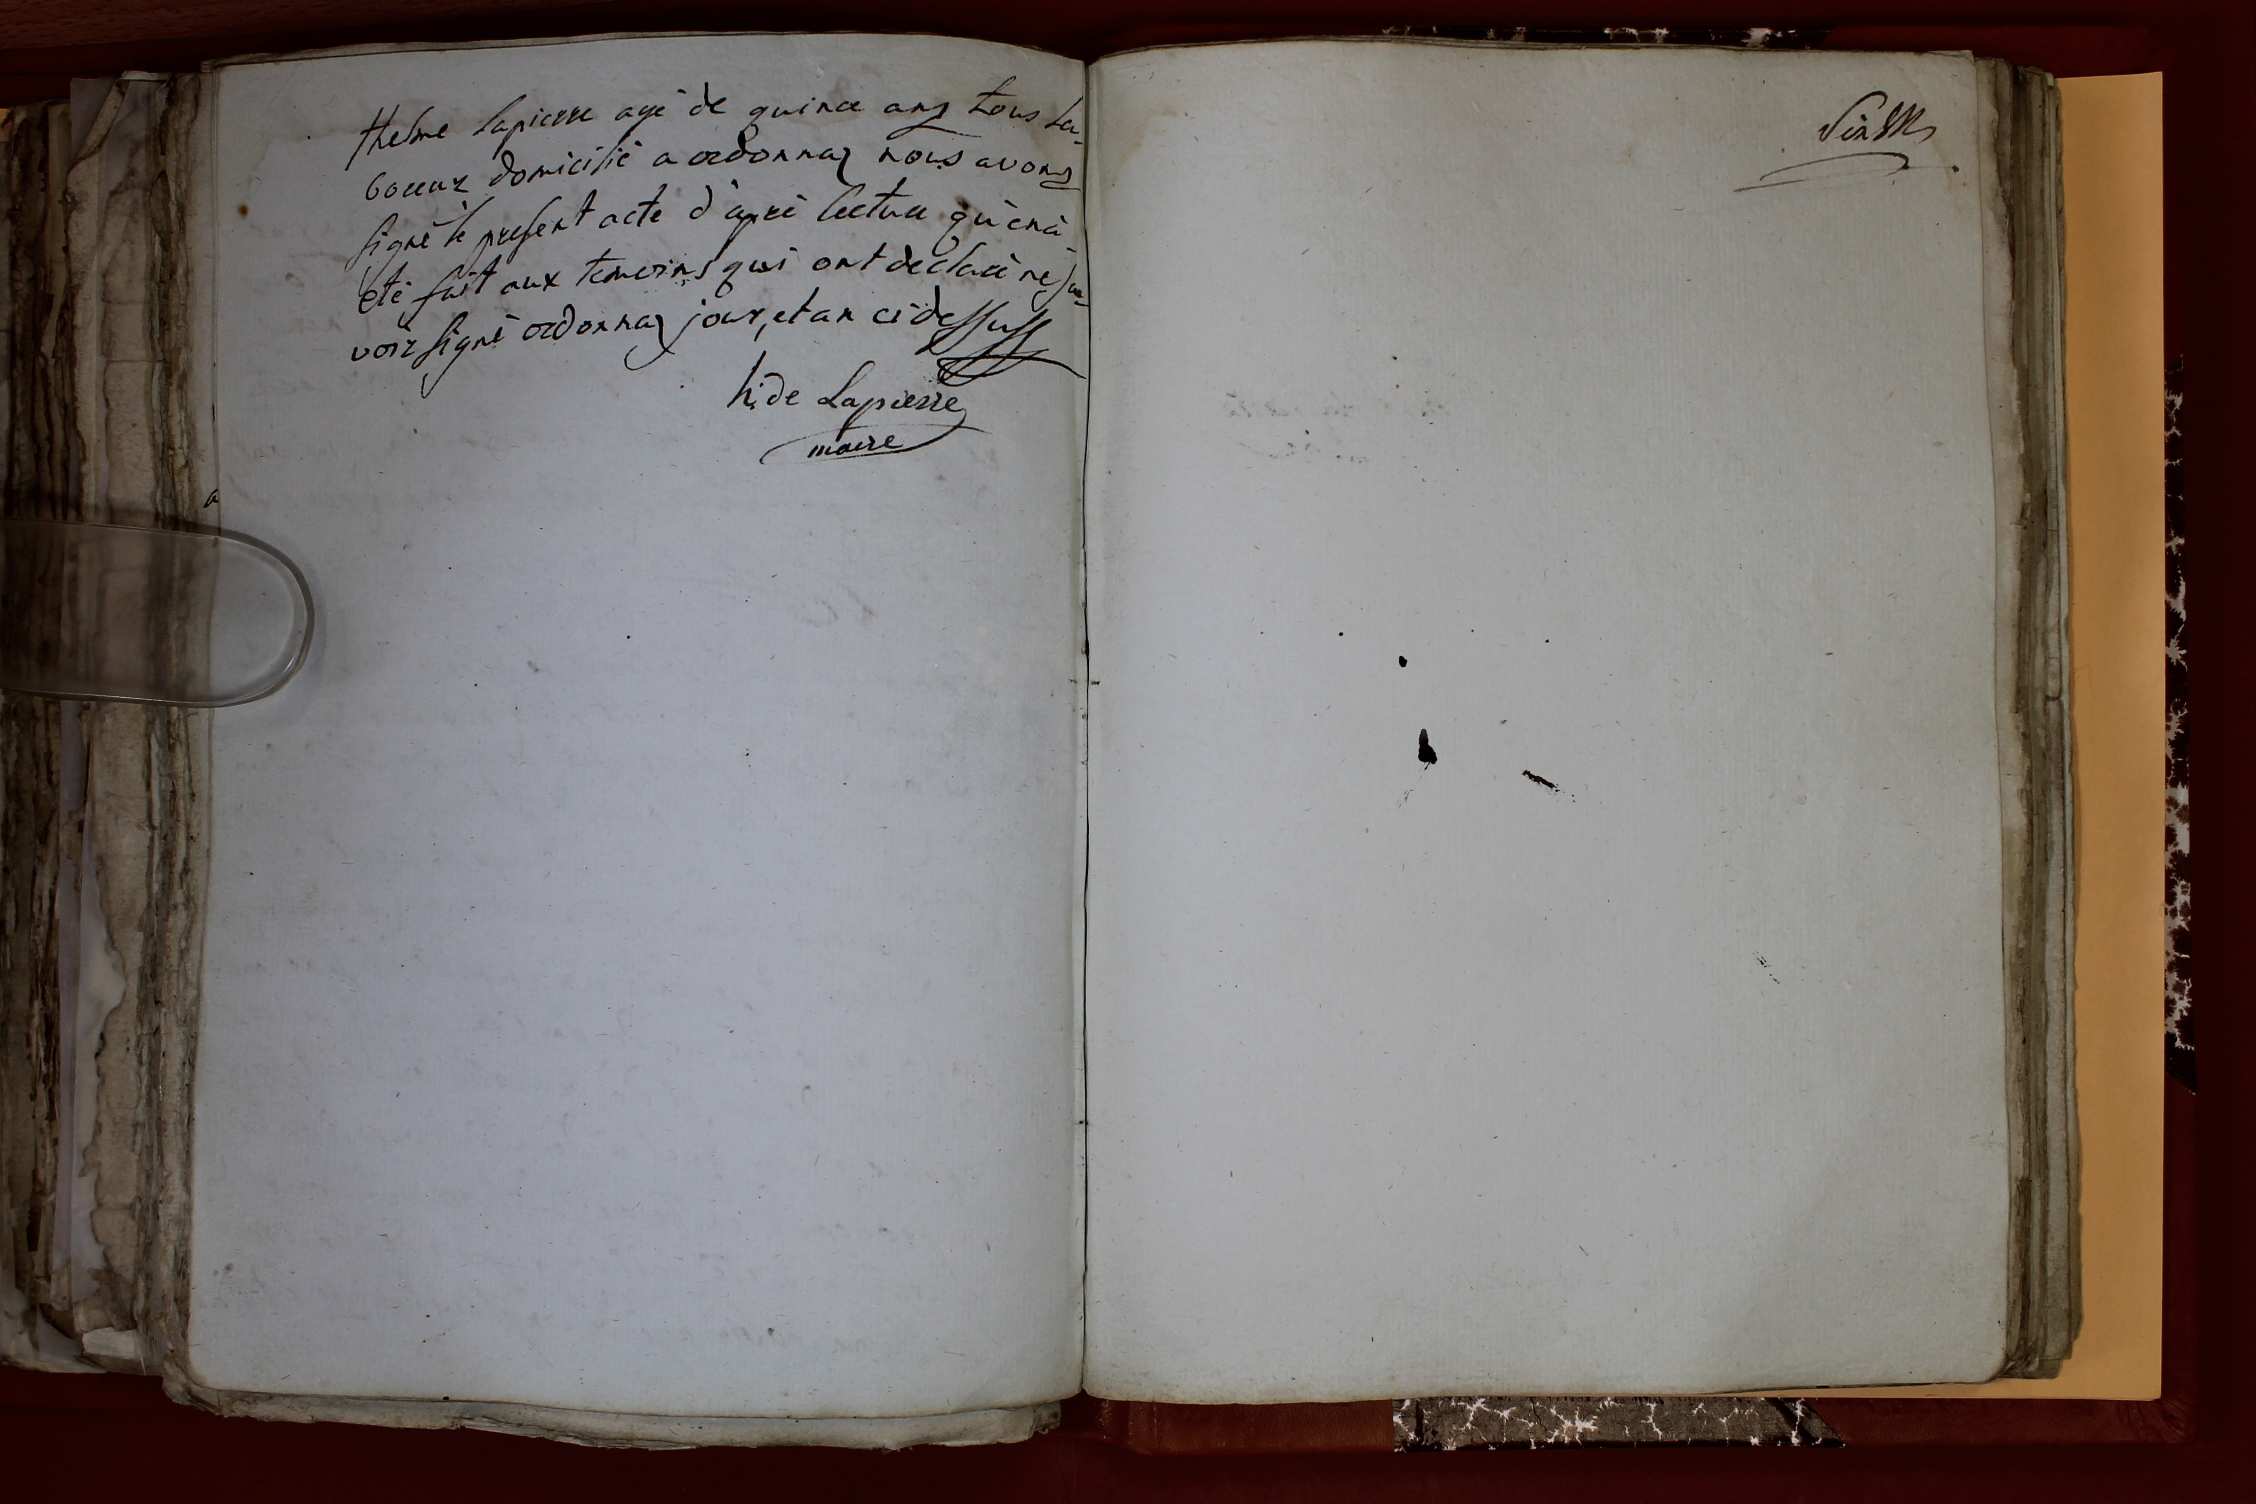 thelme Lapierre agé de quince ans tous La-
boeuur domicilié a ordonnaz nous avons
signé le present acte d'apré lecture qu'en à
eté fait aux temoins qui ont declaré ne sa-
voir signé ordonnaz jour, et an ci dessuss
h. de Lapierre
maire